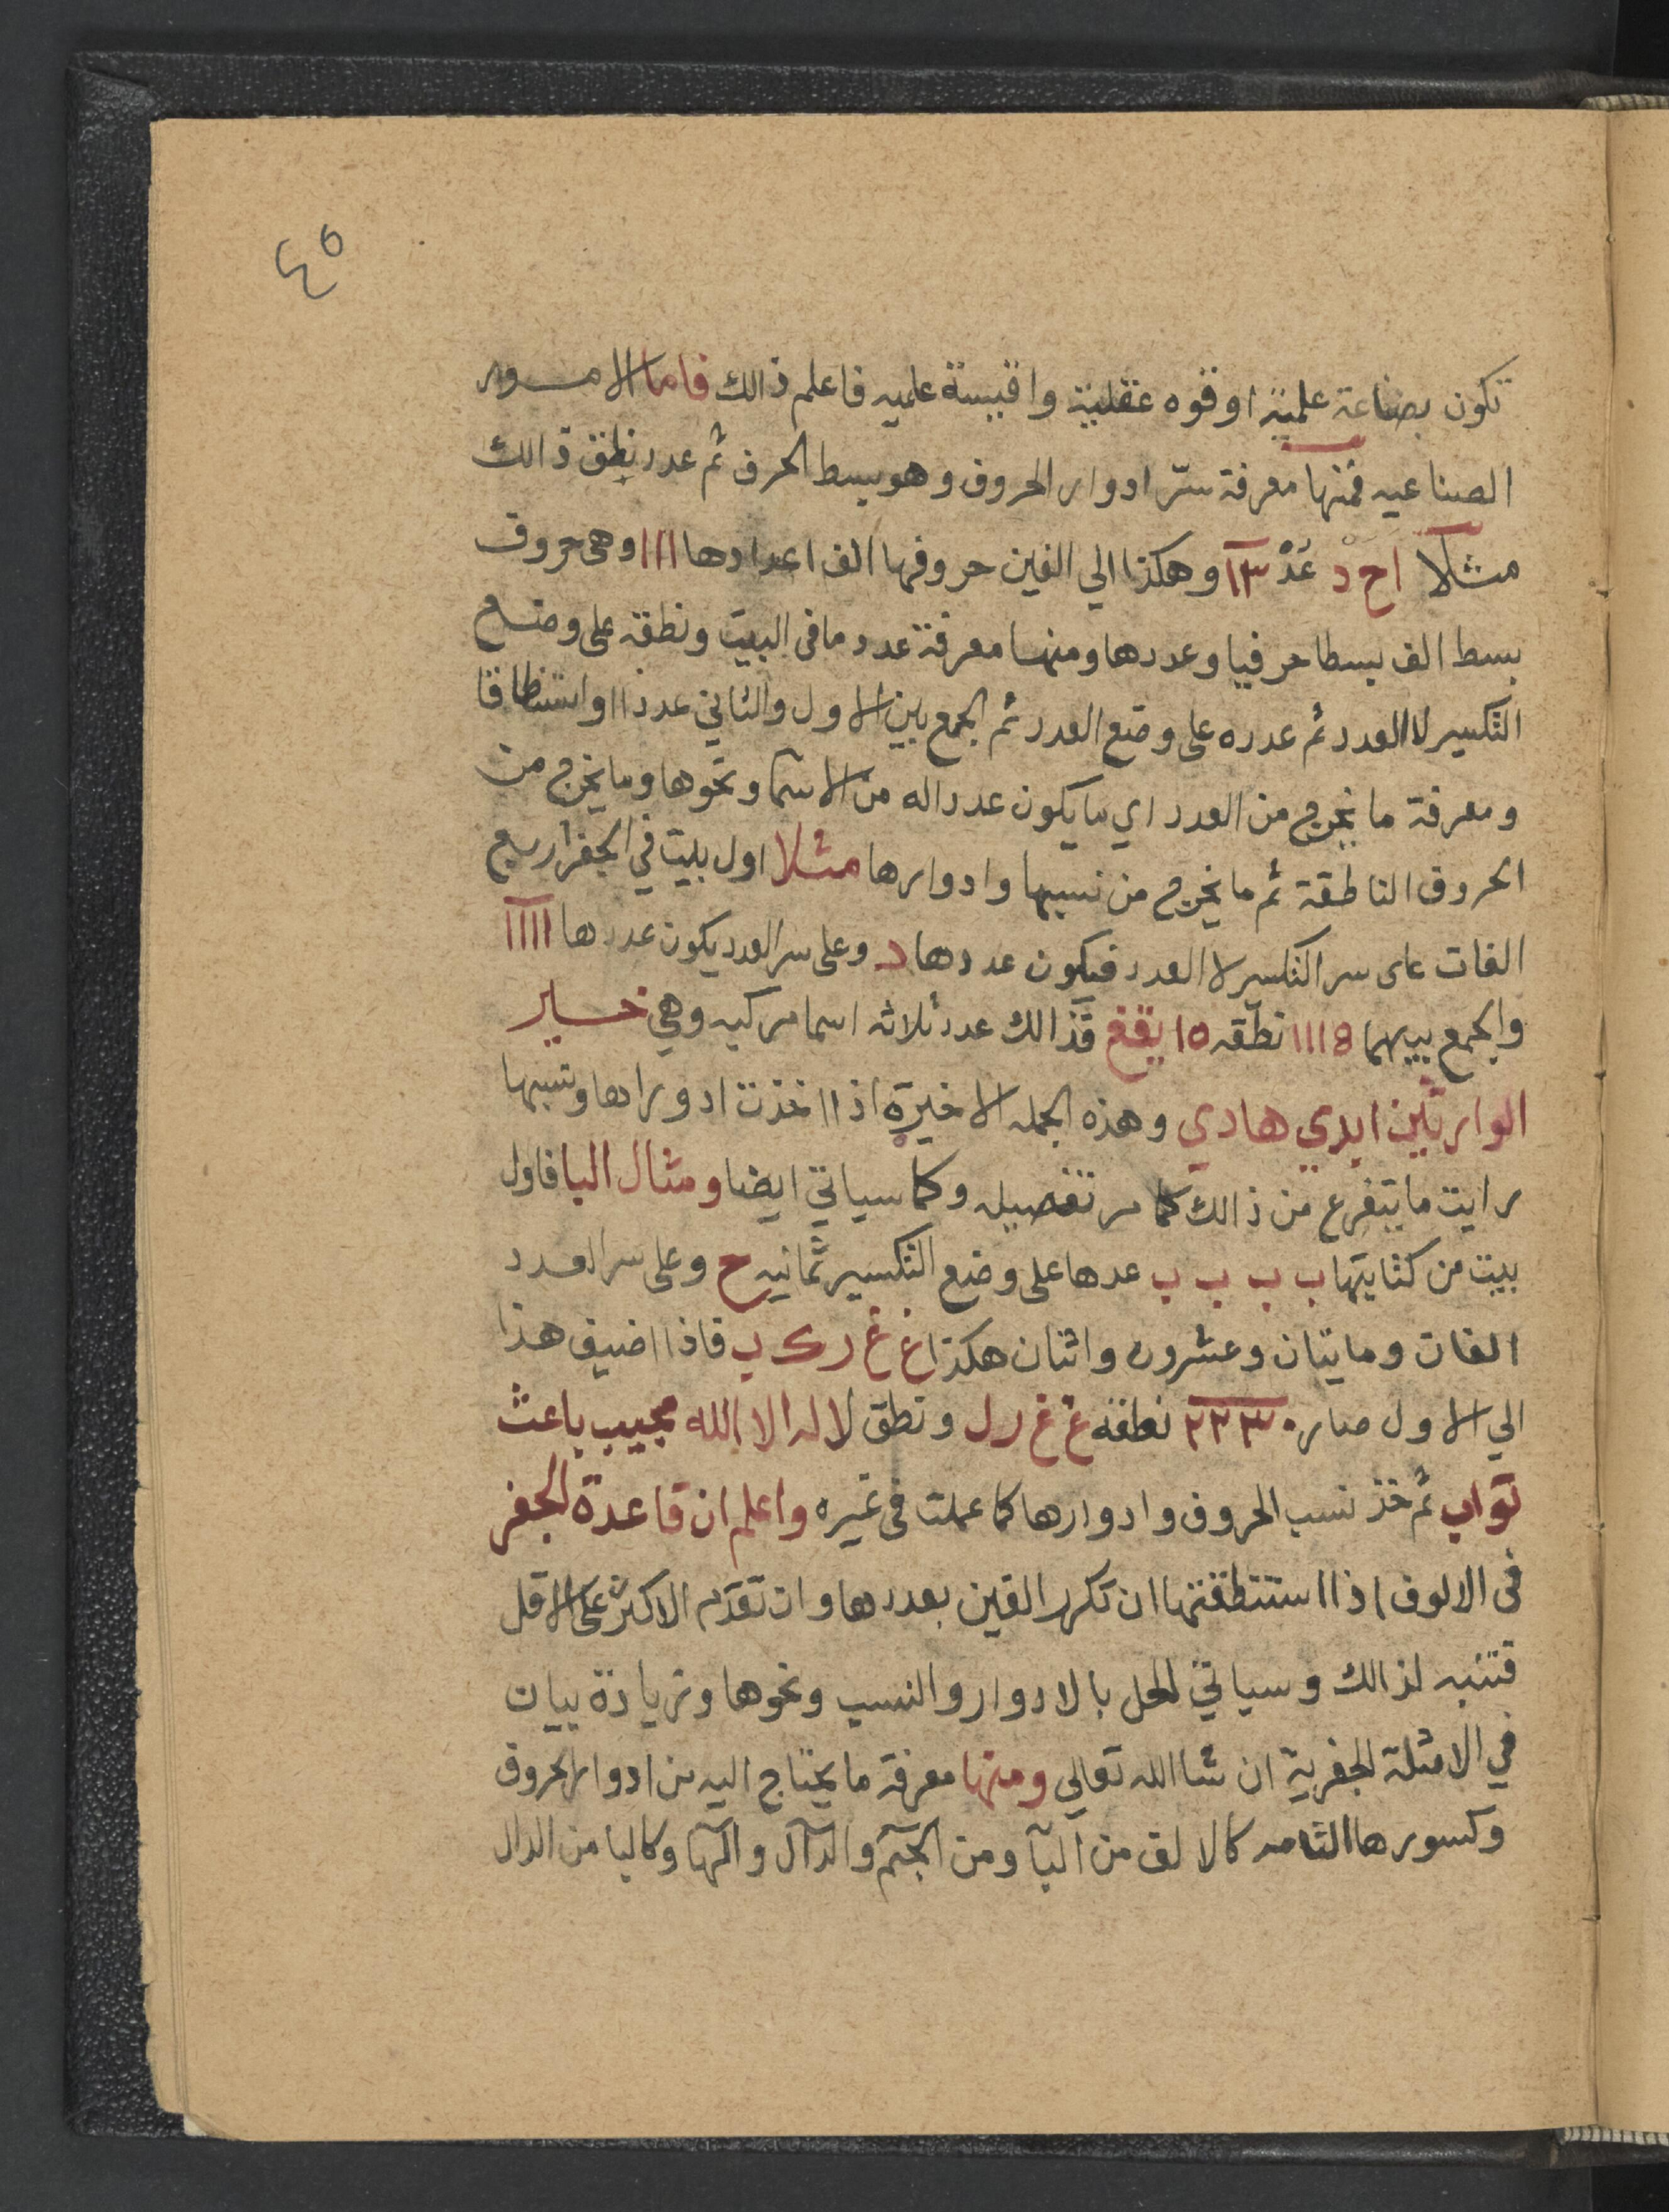 ٤٥
تكون بصناعة علمية او قوه عقلية واقيسة علميه فاعلم ذالك فاما الامور
الصناعيه فمنها معرفة سرّ ادوار الحروف وهو بسط الحرف ثم عدد نطق ذالك
مثلا اح د عَدْ ١٣ وهكذا الي الفين حروفها الف اعدادها ١١١ وهي حروف
بسط الف بسطا حرفيا وعددها ومنها معرفة عدد ما في البيت ونطقه على وضع
التكسير لا العدد ثم عدده على وضع العدد ثم الجمع بين الاول والثاني عددا واستنطاقا
ومعرفة ما يخرج من العدد اي ما يكون عددا له من الاسما ونحوها وما يخرج من
الحروف الناطقة ثم ما يخرج من نسبها وادوارها مثلا اول بيت في الجفر اربع
الفات على سر التكسير لا العدد فيكون عددها د وعلى سر العدد يكون عددها ١١١١
والجمع بينهما ١١١٥ نطقه ١٥ يقغ فذالك عدد ثلاثه اسما مركبه وهي خير
الوارثين ابدي هادي وهذه الجمله الاخيرة اذا اخذت ادورادها ونسبها
رايت ما يتفرع من ذالك كما مر تفصيله وكما سياتي ايضا ومثال البا فاول
بيت من كتابتها ب ب ب ب عدها على وضع التكسير ثمانيه ح وعلى سر العدد
الفان ومايتان وعشرون واثنان هكذا غ غ رك ب فاذا اضيف هذا
الي الاول صار ٢٢٣٠ نطقه غ غ رل ونطق لا اله الا الله مجيب باعث
تواب ثم خذ نسب الحروف وادوارها كما عملت في غيره واعلم ان قاعدة الجفر
في الالوف اذا استنطقتها ان تكرر الغين بعددها وان تقدم الاكثر على الاقل
فتنبه لذالك وسياتي العمل بالادوار والنسب ونحوها وزيادة بيان
في الامثلة الجفرية ان شا الله تعالي ومنها معرفة ما يحتاج اليه من ادوار الحروف
وكسورها التامه كالالف من البآ ومن الجيم والدال والهآ وكالبا من الدال